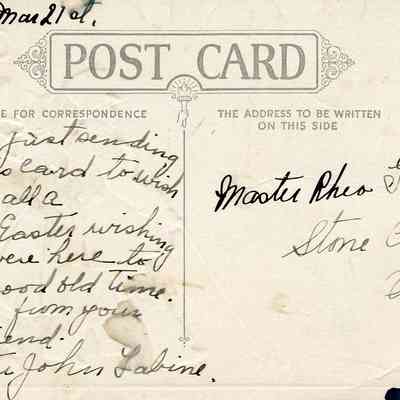 Mar 21st.
POST CARD
E FOR CORRESPONDENCE
THE ADDRESS TO BE WRITTEN
ON THIS SIDE
just sending
card to wish
all a
Easter wishing
were here to
good old time.
from your
John Labine.
Master Rheo
Stone